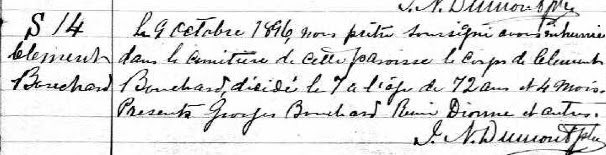 J. N. Dumont ptre
S 14
Clement
Bouchard
Le 9 octobre 1896, nous prêtre soussigné avons inhumé
dans le cimitière de cette paroisse le corps de Clement
Bouchard, décédé le 7 a l'âge de 72 ans et 4 mois.
Presents Georges Bouchard Dionne et autres.
J. N. Dumont ptre